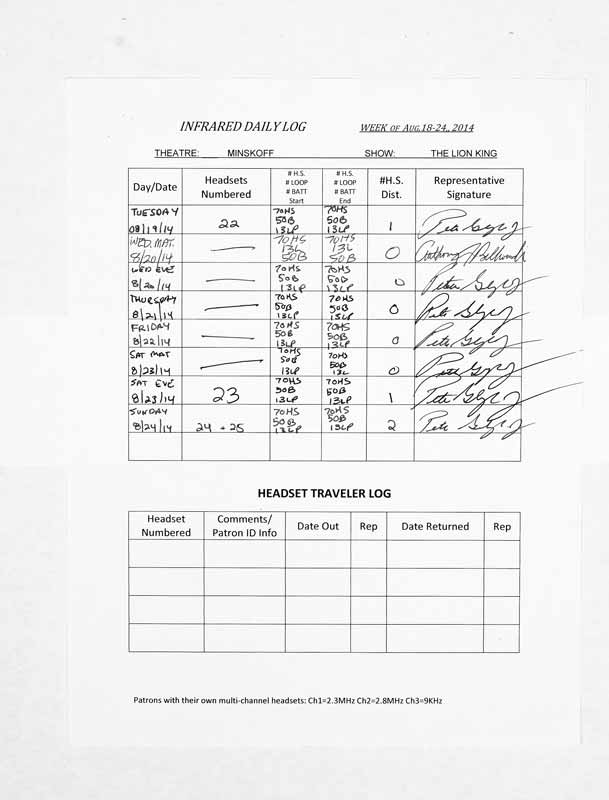 INFRARED DAILY LOG WEEK OF AUG.18-24, 2014
THEATRE: MINSKOFF SHOW: THE LION KING
Day/Date Headsets Numbered # H.S. # LOOP # BATT Start # H.S. # LOOP # BATT End #H.S. Dist. Representative Signature
TUESDAY 08/19/14 22 70HS 50B 13LP 70HS 50B 13LP 1
WED. MAT. 8/20/14 — 70HS 13L 50B 70HS 13L 50B 0 Anthony
WED EVE 8/20/14 — 70HS 50B 13LP 70HS 50B 13LP 0 Peter
THURSDAY 8/21/14 — 70HS 50B 13LP 70HS 50B 13LP 0 Pete
FRIDAY 8/22/14 — 70HS 50B 13LP 70HS 50B 13LP 0 Pete
SAT MAT 8/23/14 — 70HS 50B 13LP 70HS 50B 13L 0 Pete
SAT EVE 8/23/14 23 70HS 50B 13LP 70HS 50B 13LP 1 Pete
SUNDAY 8/24/14 24 + 25 70HS 50B 13LP 70HS 50B 13LP 2 Pete
HEADSET TRAVELER LOG
Headset Numbered Comments/ Patron ID Info Date Out Rep Date Returned Rep
Patrons with their own multi-channel headsets: Ch1=2.3MHz Ch2=2.8MHz Ch3=9KHz